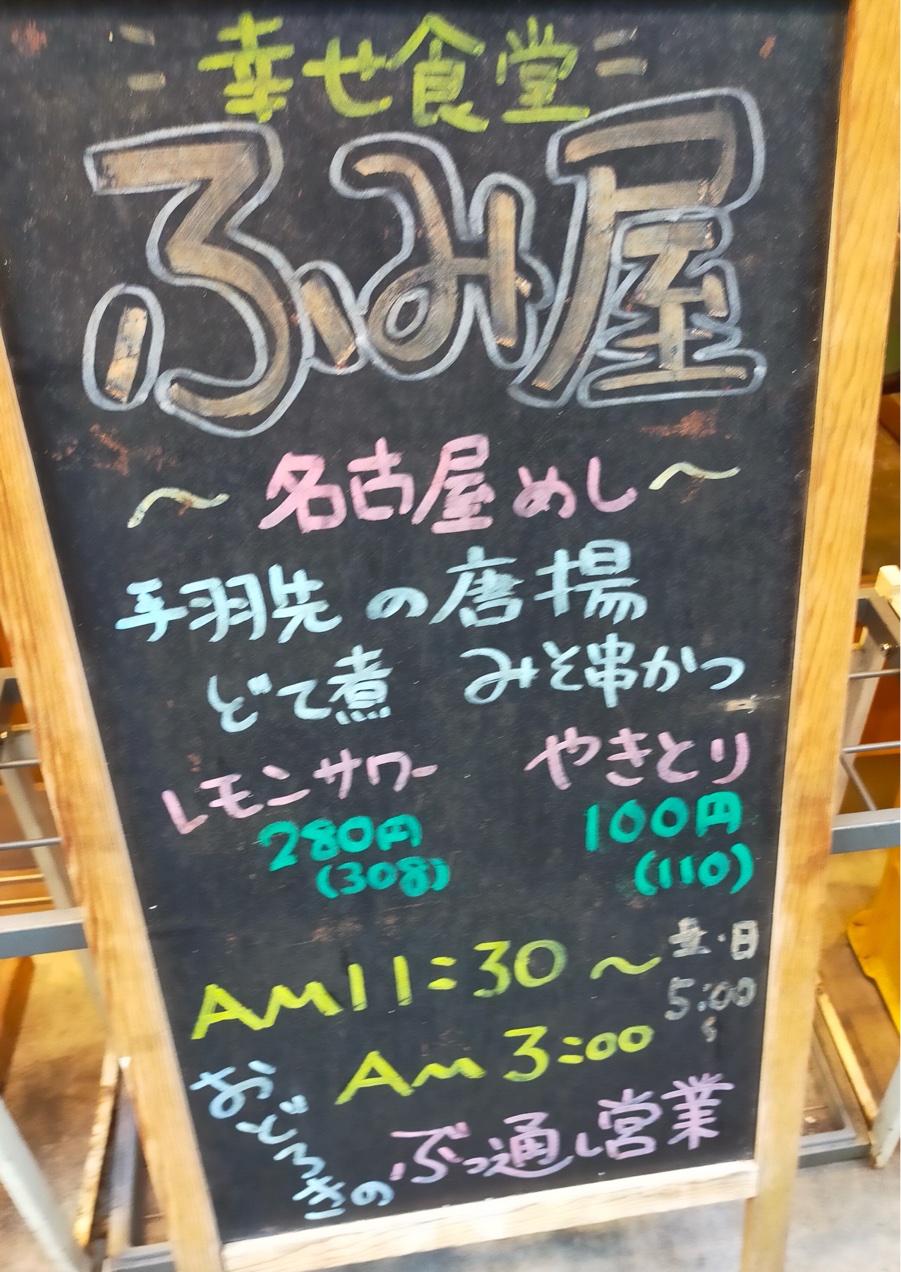 幸せ食堂
ふみ屋
～名古屋めし～
手羽先の唐揚
どて煮 みそ串かつ
レモンサワー やきとり
280円 100円
(308) (110)
AM11:30～
AM3:00
・日
5:00
～
おどろきの
ぶっ通し営業